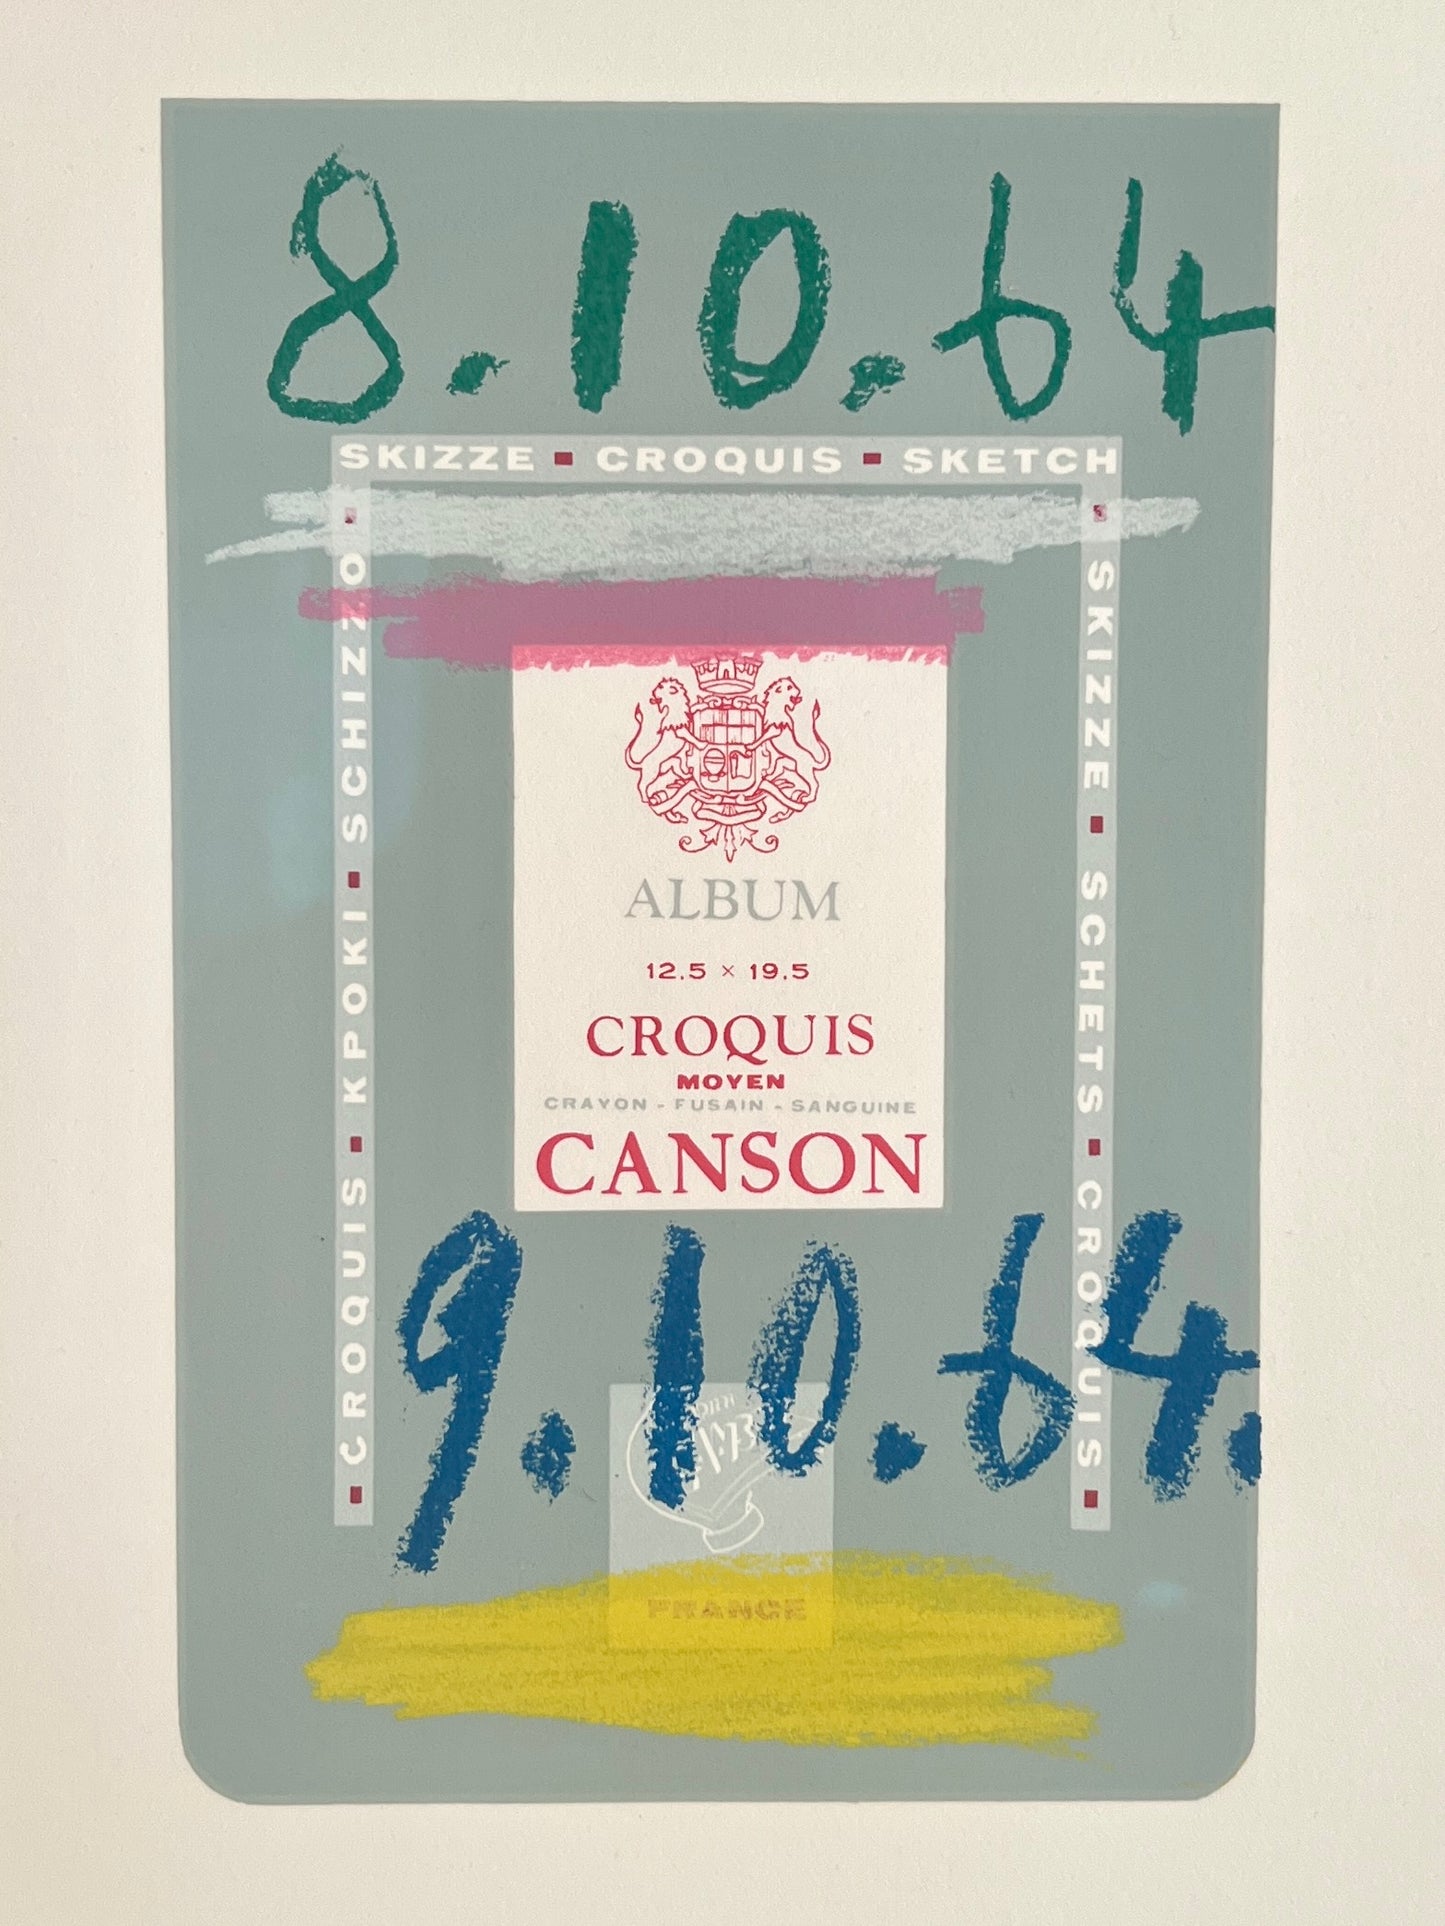 8.10.64
SKIZZE ▪ CROQUIS ▪ SKETCH
▪ SKIZZE ▪ SCHETS ▪ CROQUIS ▪
▪ CROQUIS ▪ KPOKI ▪ SCHIZZO ▪
ALBUM
12.5 × 19.5
CROQUIS
MOYEN
CRAYON - FUSAIN - SANGUINE
CANSON
9.10.64.
FRANCE